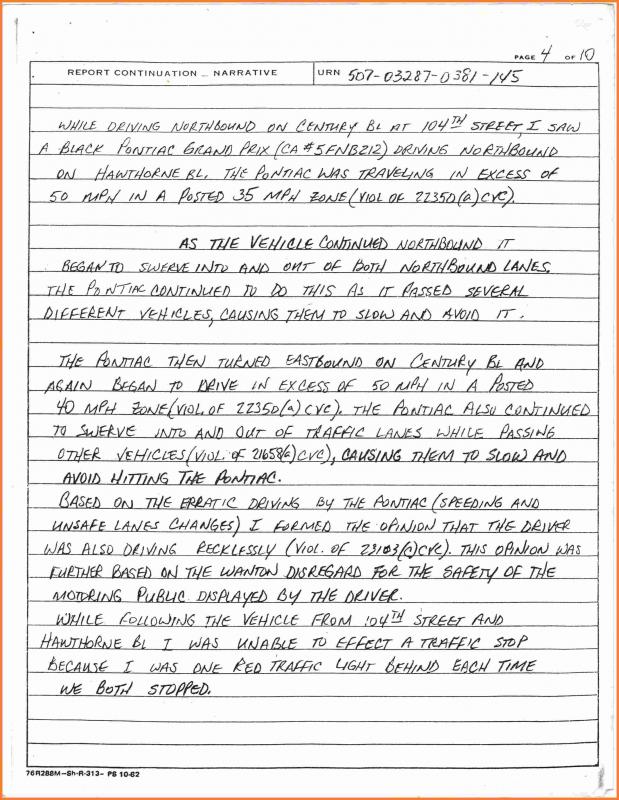 PAGE 4 OF 10
REPORT CONTINUATION — NARRATIVE
URN 507-03287-0381-145
WHILE DRIVING NORTHBOUND ON CENTURY BL AT 104TH STREET, I SAW
A BLACK PONTIAC GRAND PRIX (CA #5FNB212) DRIVING NORTHBOUND
ON HAWTHORNE BL. THE PONTIAC WAS TRAVELING IN EXCESS OF
50 MPH IN A POSTED 35 MPH ZONE (VIOL OF 22350(a) CVC).
AS THE VEHICLE CONTINUED NORTHBOUND IT
BEGAN TO SWERVE INTO AND OUT OF BOTH NORTHBOUND LANES.
THE PONTIAC CONTINUED TO DO THIS AS IT PASSED SEVERAL
DIFFERENT VEHICLES, CAUSING THEM TO SLOW AND AVOID IT.
THE PONTIAC THEN TURNED EASTBOUND ON CENTURY BL AND
AGAIN BEGAN TO DRIVE IN EXCESS OF 50 MPH IN A POSTED
40 MPH ZONE (VIOL. OF 22350(a) CVC). THE PONTIAC ALSO CONTINUED
TO SWERVE INTO AND OUT OF TRAFFIC LANES WHILE PASSING
OTHER VEHICLES (VIOL. OF 21658(a) CVC), CAUSING THEM TO SLOW AND
AVOID HITTING THE PONTIAC.
BASED ON THE ERRATIC DRIVING BY THE PONTIAC (SPEEDING AND
UNSAFE LANES CHANGES) I FORMED THE OPINION THAT THE DRIVER
WAS ALSO DRIVING RECKLESSLY (VIOL. OF 23103(a) CVC). THIS OPINION WAS
FURTHER BASED ON THE WANTON DISREGARD FOR THE SAFETY OF THE
MOTORING PUBLIC DISPLAYED BY THE DRIVER.
WHILE FOLLOWING THE VEHICLE FROM 104TH STREET AND
HAWTHORNE BL I WAS UNABLE TO EFFECT A TRAFFIC STOP
BECAUSE I WAS ONE RED TRAFFIC LIGHT BEHIND EACH TIME
WE BOTH STOPPED.
76R288M—Sh-R-313— PS 10-82